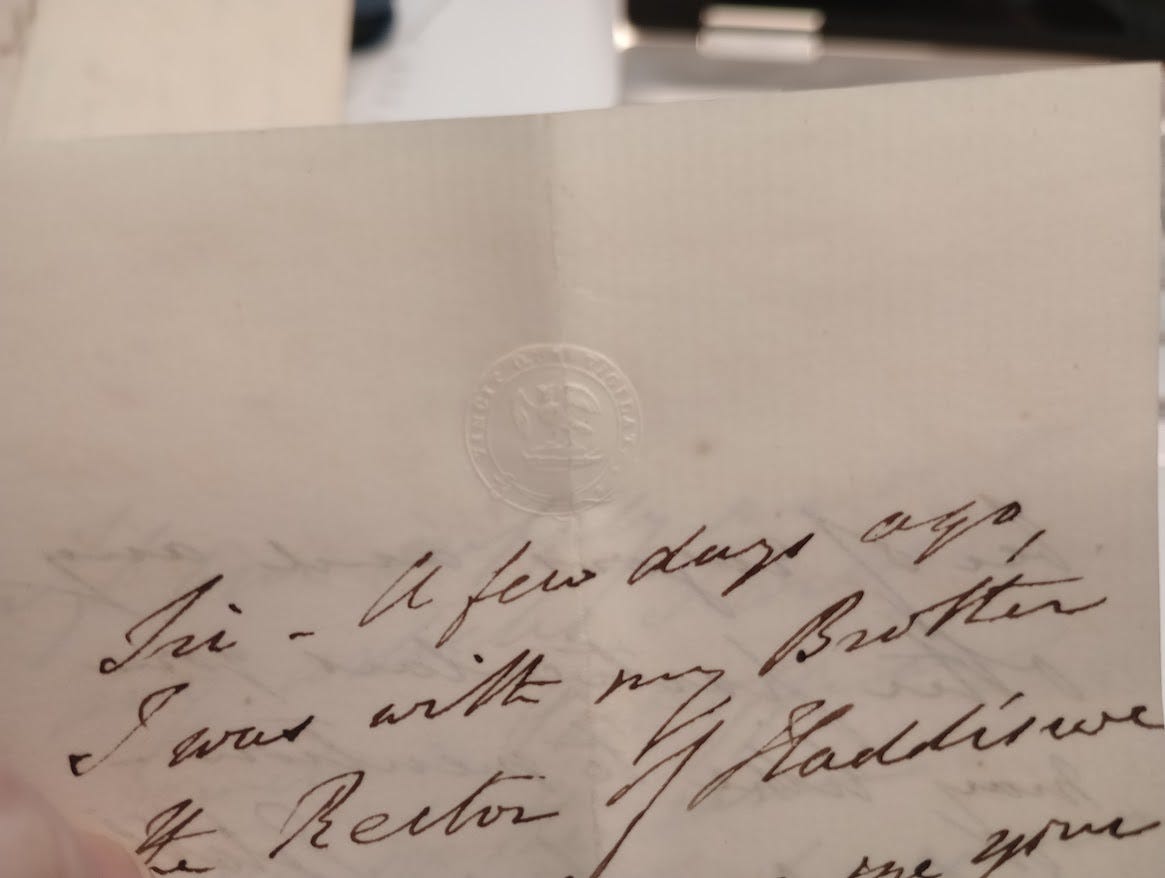 VINCIT QUI VIGILAT
Sir - A few days ago,
I was with my Brother
the Rector of Haddiscoe
me your